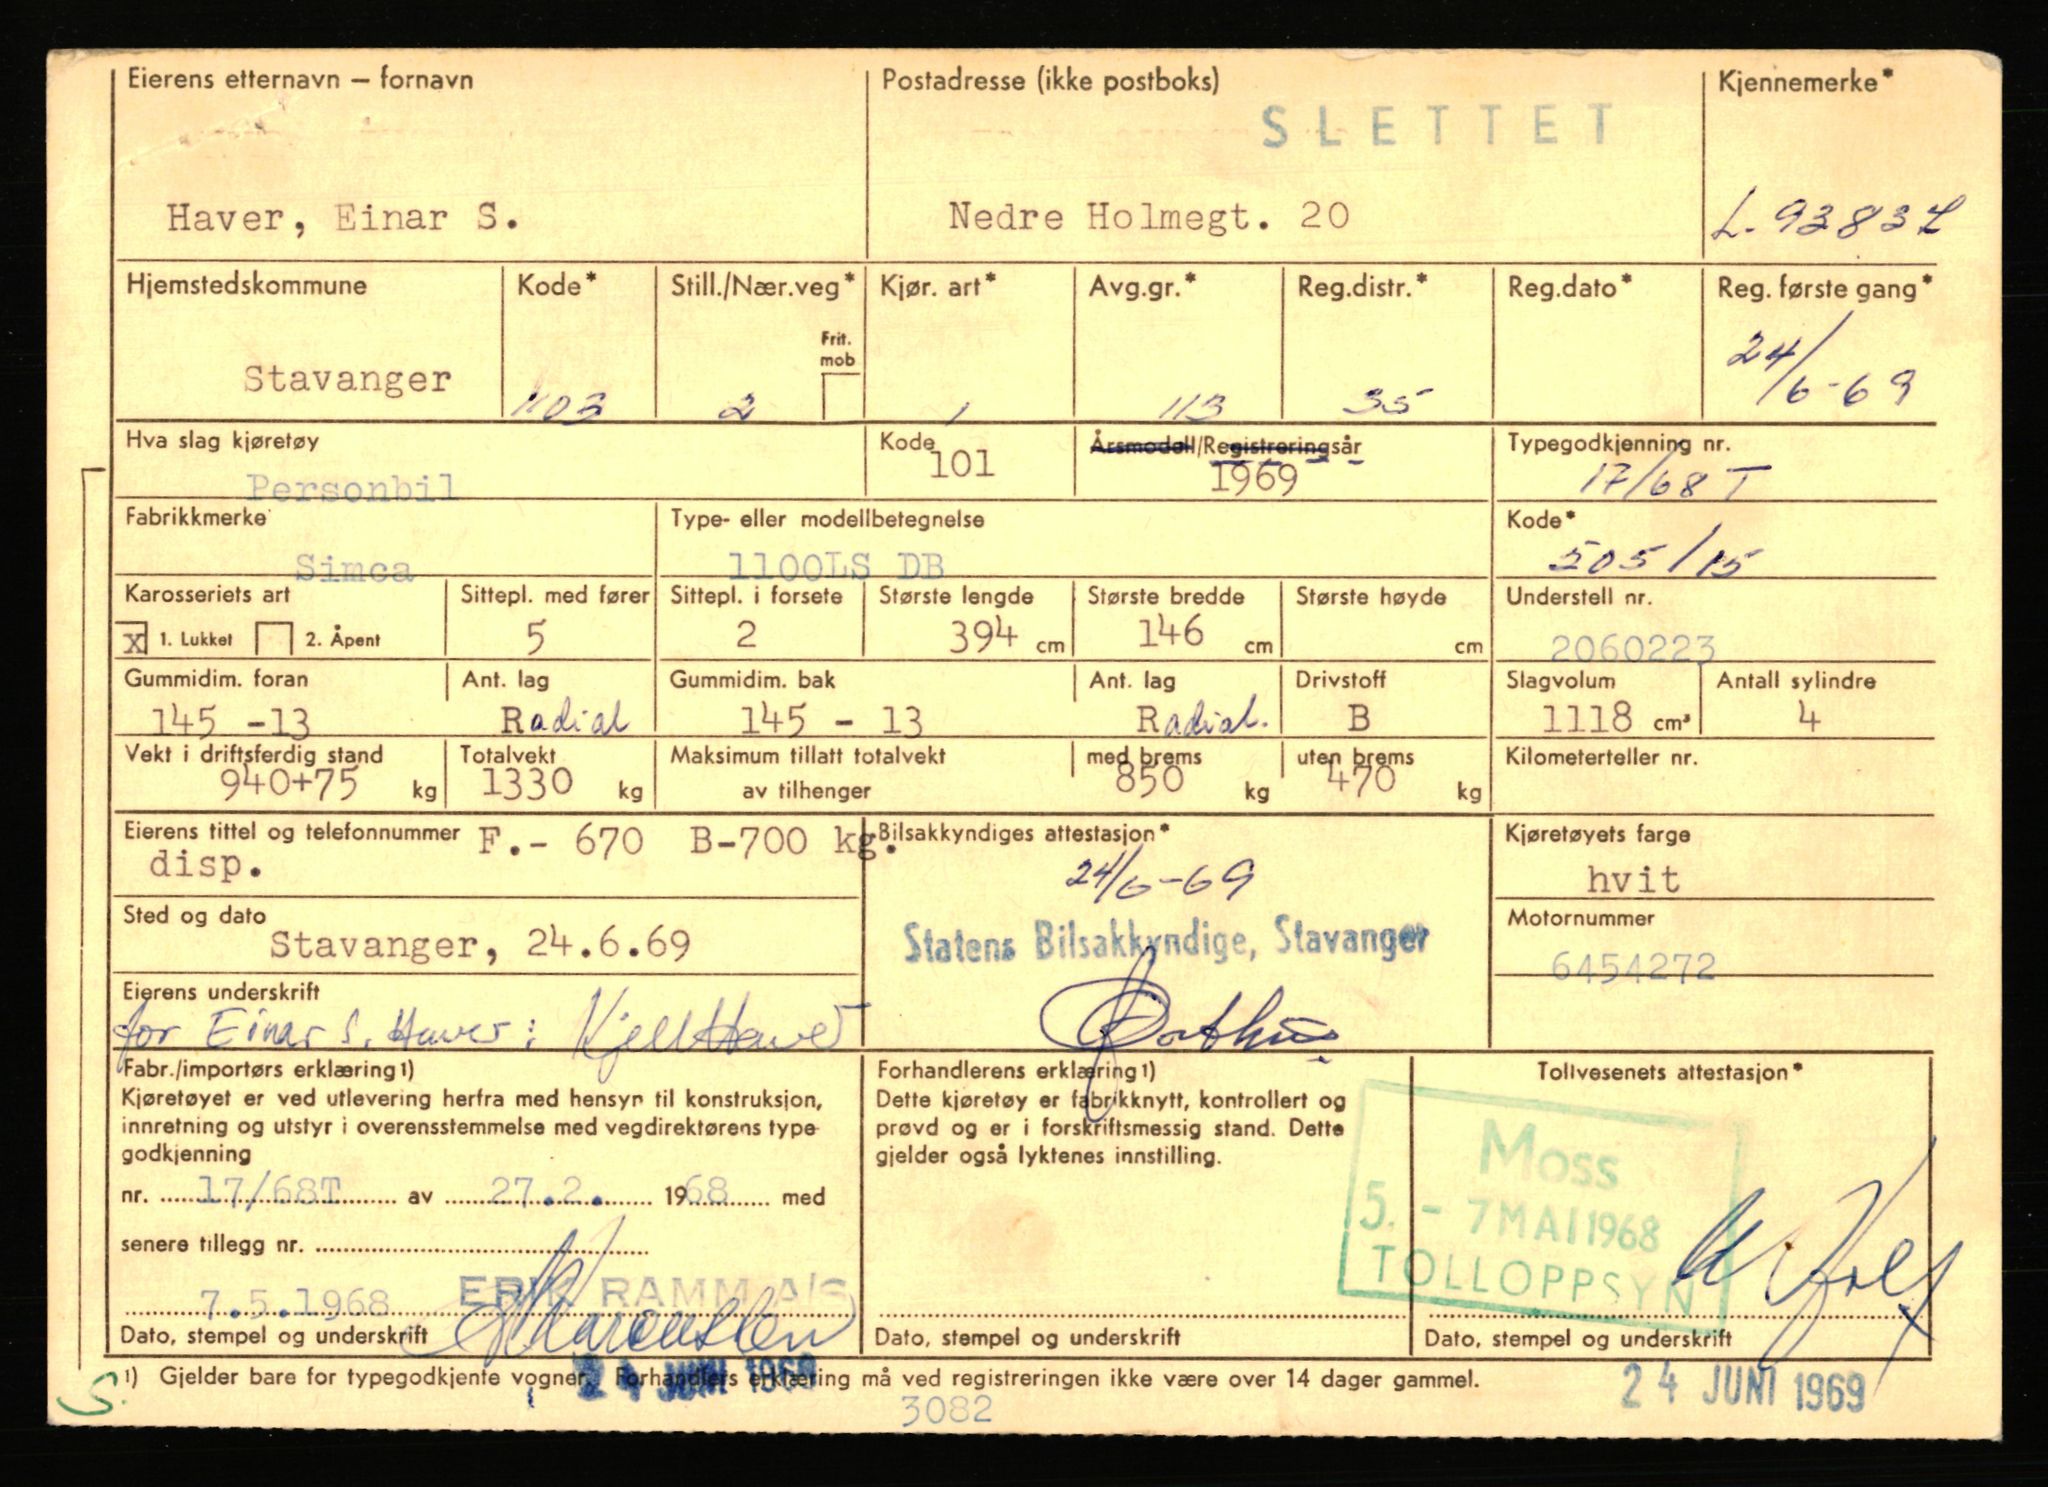 Eierens etternavn — fornavn
Postadresse (ikke postboks)
Kjennemerke*
SLETTET
Haver, Einar S.
Nedre Holmegt. 20
Hjemstedskommune
Kode*
Still./Nær.veg*
Kjør. art*
Avg.gr.*
Reg.distr.*
Reg.dato*
Reg. første gang*
Frit. mob
Stavanger
1103
2
1
113
35
24/6-69
Hva slag kjøretøy
Kode
Årsmodell/Registreringsår
Typegodkjenning nr.
Personbil
101
1969
17/68 T
Fabrikkmerke
Type- eller modellbetegnelse
Kode*
Simca
1100LS DB
505/15
Karosseriets art
Sittepl. med fører
Sittepl. i forsete
Største lengde
Største bredde
Største høyde
Understell nr.
x 1. Lukket 2. Åpent
5
2
394 cm
146 cm
cm
2060223
Gummidim. foran
Ant. lag
Gummidim. bak
Ant. lag
Drivstoff
Slagvolum
Antall sylindre
145 -13
Radial
145 - 13
Radial.
B
1118 cm³
4
Vekt i driftsferdig stand
Totalvekt
Maksimum tillatt totalvekt
av tilhenger
med brems
uten brems
Kilometerteller nr.
940+75 kg
1330 kg
850 kg
470 kg
Eierens tittel og telefonnummer
F.- 670 B-700 kg.
disp.
Bilsakkyndiges attestasjon*
24/6-69
Kjøretøyets farge
hvit
Sted og dato
Stavanger, 24.6.69
Statens Bilsakkyndige, Stavanger
Motornummer
6454272
Eierens underskrift
for Einar S. Haver: Kjell Haver
Fabr./importørs erklæring 1)
Kjøretøyet er ved utlevering herfra med hensyn til konstruksjon,
innretning og utstyr i overensstemmelse med vegdirektørens type-
godkjenning
nr. 17/68T av 27.2. 1968 med
senere tillegg nr.
7.5.1968
ERIK RAMM A/S
Dato, stempel og underskrift
Forhandlerens erklæring 1)
Dette kjøretøy er fabrikknytt, kontrollert og
prøvd og er i forskriftsmessig stand. Dette
gjelder også lyktenes innstilling.
Dato, stempel og underskrift
Tollvesenets attestasjon*
Moss
5. - 7 MAI 1968
TOLLOPPSYN
Dato, stempel og underskrift
1) Gjelder bare for typegodkjente vogner. Forhandlers erklæring må ved registreringen ikke være over 14 dager gammel.
24 JUNI 1969
24 JUNI 1969
3082
S.